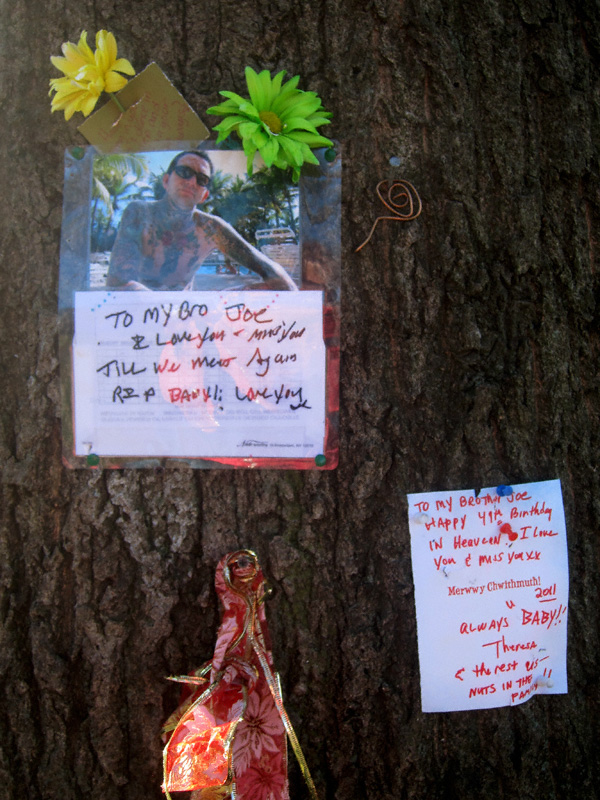 TO MY BRO JOE
I Love you + Miss you
TILL We Meet Again
R I P BABY!! Love you
TO MY BROTHER JOE
HAPPY 49th Birthday
IN HEAVEN!! I Love
you & miss you xx
Merwwy Chwithmuth!
2011
ALWAYS BABY!!
Theresa
& the rest of us
NUTS IN THE
FAMILY!!